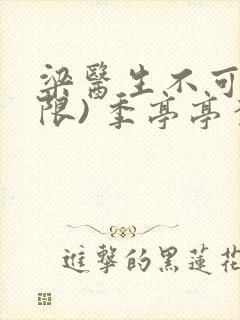 梁醫生不可
限) 季亭亭
進擊的黑蓮花